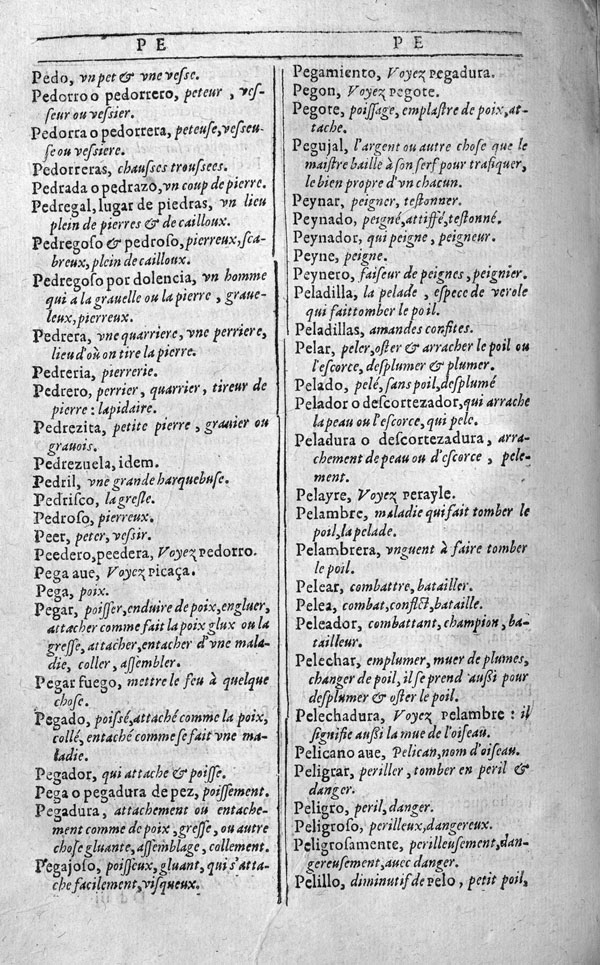 P E
Pedo, vn pet & vne vesse.
Pedorro o pedorrero, peteur , ves-
seur ou vessier.
Pedorra o pedorrera, peteuse, vesseu-
se ou vessiere.
Pedorreras, chausses troussees.
Pedrada o pedrazo, vn coup de pierre.
Pedregal, lugar de piedras, vn lieu
plein de pierres & de cailloux.
Pedregoso & pedroso, pierreux, sca-
breux, plein de cailloux.
Pedregoso por dolencia, vn homme
qui a la grauelle ou la pierre , graue-
leux, pierreux.
Pedrera, vne quarriere, vne perriere,
lieu d'où on tire la pierre.
Pedreria, pierrerie.
Pedrero, perrier, quarrier, tireur de
pierre : lapidaire.
Pedrezita, petite pierre , grauier ou
grauois.
Pedrezuela, idem.
Pedril, vne grande harquebuse.
Pedrisco, la gresle.
Pedroso, pierreux.
Peer, peter, vessir.
Peedero, peedera, Voyez Pedorro.
Pega aue, Voyez Picaça.
Pega, poix.
Pegar, poisser, enduire de poix, engluer,
attacher comme fait la poix glux ou la
gresse, attacher, entacher d'vne mala-
die, coller, assembler.
Pegar fuego, mettre le feu à quelque
chose.
Pegado, poissé, attaché comme la poix,
collé, entaché comme se fait vne ma-
ladie.
Pegador, qui attache & poisse.
Pega o pegadura de pez, poissement.
Pegadura, attachement ou entache-
ment comme de poix, gresse, ou autre
chose gluante, assemblage, collement.
Pegajoso, poisseux, gluant, qui s'atta-
che facilement, visqueux.
P E
Pegamiento, Voyez Pegadura.
Pegon, Voyez Pegote.
Pegote, poissage, emplastre de poix, at-
tache.
Pegujal, l'argent ou autre chose que le
maistre baille à son serf pour trafiquer,
le bien propre d'vn chacun.
Peynar, peigner, testonner.
Peynado, peigné, attiffé, testonné.
Peynador, qui peigne, peigneur.
Peyne, peigne.
Peynero, faiseur de peignes, peignier.
Peladilla, la pelade , espece de verole
qui fait tomber le poil.
Peladillas, amandes confites.
Pelar, peler, oster & arracher le poil ou
l'escorce, desplumer & plumer.
Pelado, pelé, sans poil, desplumé
Pelador o descortezador, qui arrache
la peau ou l'escorce, qui pele.
Peladura o descortezadura, arra-
chement de peau ou d'escorce , pele-
ment.
Pelayre, Voyez Perayle.
Pelambre, maladie qui fait tomber le
poil, la pelade.
Pelambrera, vnguent à faire tomber
le poil.
Pelear, combattre, batailler.
Pelea, combat, conflict, bataille.
Peleador, combattant, champion, ba-
tailleur.
Pelechar, emplumer, muer de plumes,
changer de poil, il se prend aussi pour
desplumer & oster le poil.
Pelechadura, Voyez Pelambre : il
signifie aussi la mue de l'oiseau.
Pelicano aue, Pelican, nom d'oiseau.
Peligrar, periller, tomber en peril &
danger.
Peligro, peril, danger.
Peligroso, perilleux, dangereux.
Peligrosamente, perilleusement, dan-
gereusement, auec danger.
Pelillo, diminutif de Pelo , petit poil,